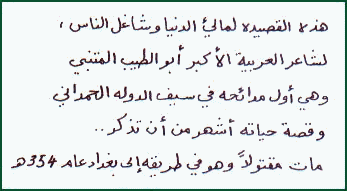 هذه القصيده لمالئ الدنيا وشاغل الناس ،
لشاعر العربية الأكبر أبو الطيب المتنبي
وهي أول مدائحه في سيف الدوله الحمداني
وقصة حياته أشهر من أن تذكر ..
مات مقتولاً وهو في طريقه إلى بغداد عام 354 هـ